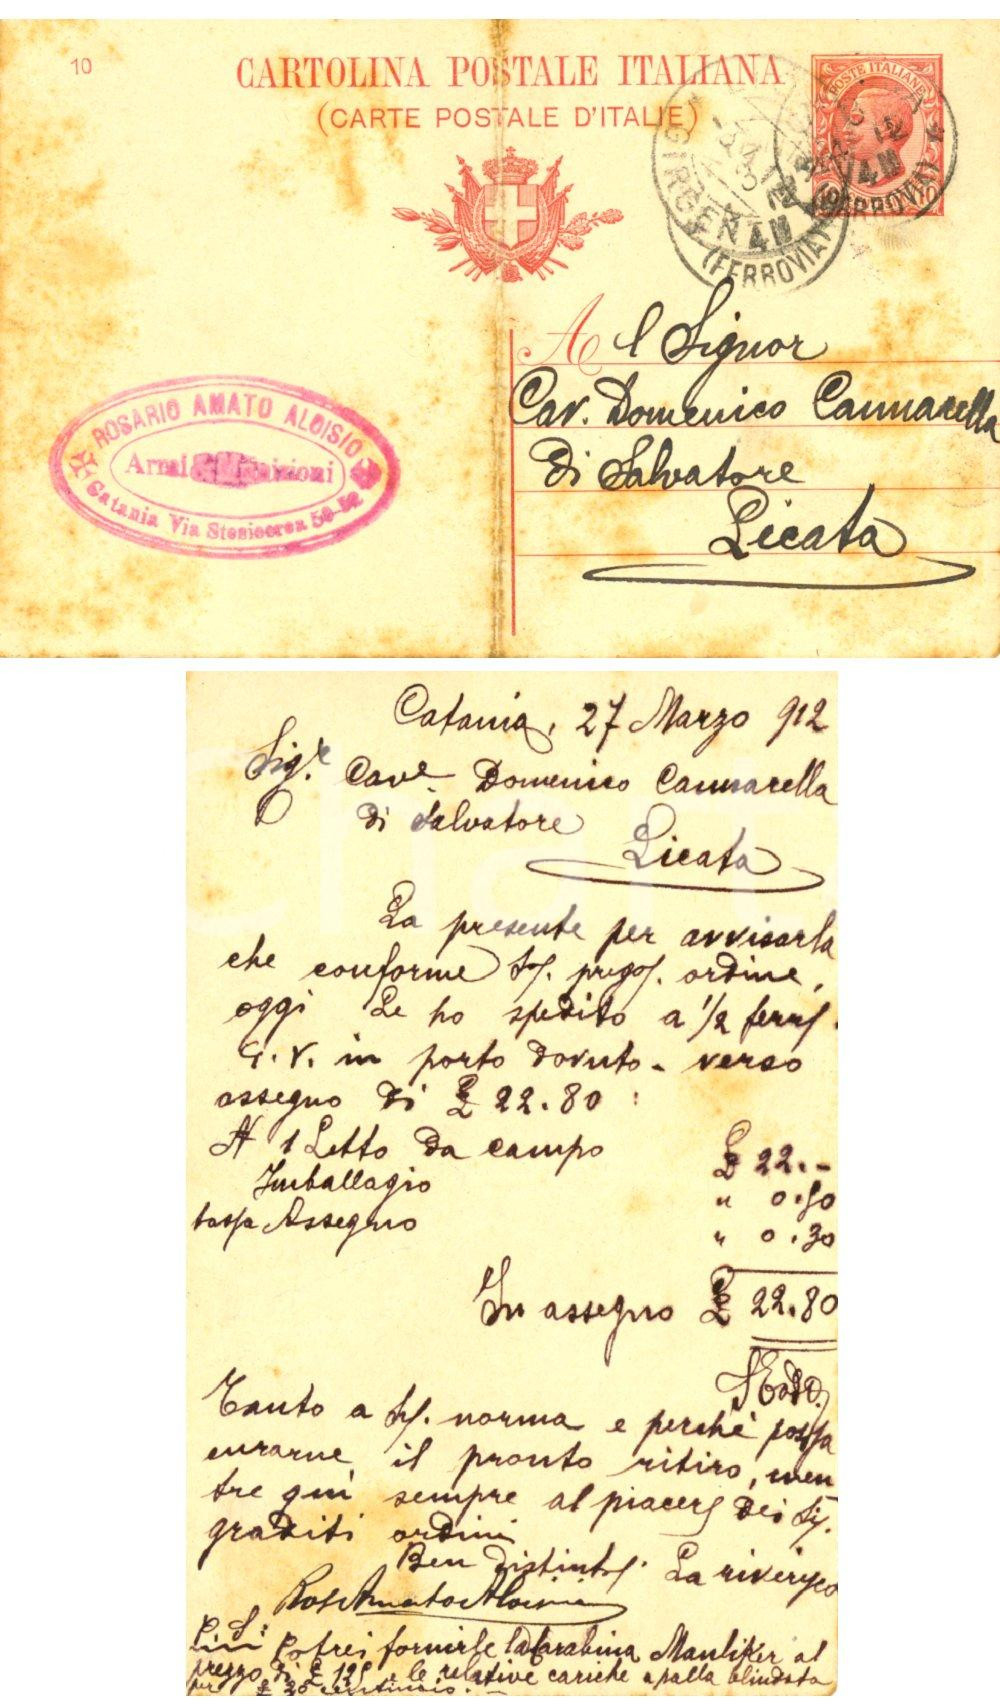 10
CARTOLINA POSTALE ITALIANA
(CARTE POSTALE D'ITALIE)
POSTE ITALIANE
GIRGENTI
(FERROVIA)
4M
(FERROVIA)
4M
Al Signor
Cav. Domenico Cannarella
di Salvatore
Licata
ROSARIO AMATO ALOISIO
Armi
Catania Via Stesicorea 50-52
Catania, 27 Marzo 912
Sig.r Cave. Domenico Cannarella
di Salvatore
Licata
La presente per avvisarla
che conforme Sf. pregof. ordine,
oggi Le ho spedito a 1/2 ferrf.
G.V. in porto dovuto - verso
assegno di £ 22.80:
N 1 Letto da campo £ 22.-
Imballagio " 0.50
tassa Assegno " 0.30
In assegno £ 22.80
S.E.&.O.
Tanto a Sf. norma e perchè possa
curarne il pronto ritiro, men
tre qui sempre al piacerf dei Sf.
graditi ordini
Ben distintf. La riverisco
Ros Amato Aloisio
P.S:
potrei fornirle la Carabina Manliker al
prezzo di £ 125 e le relative cariche a palla blindata
per £ 20 centinaio.